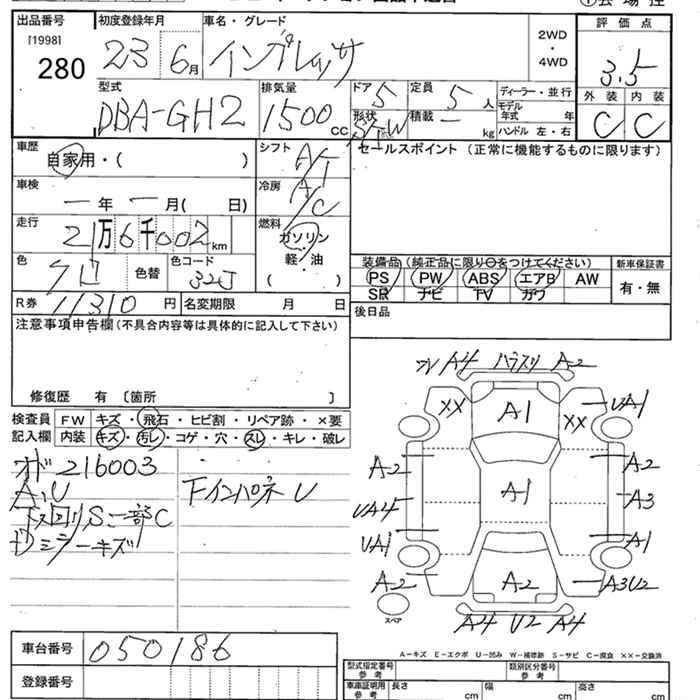 出品番号
[1998]
280
初度登録年月
23 6月
車名・グレード
インプレッサ
2WD
・
4WD
評価点
3.5
外装 内装
C C
型式
DBA-GH2
排気量
1500 CC
ドア
5
定員
5人
形状
S/W
積載
— kg
ディーラー・並行
モデル年式 年
ハンドル 左・右
車歴
自家用・( )
シフト
A/T
セールスポイント (正常に機能するものに限ります)
車検
— 年 — 月( 日)
冷房
A/C
走行
21万6千002km
燃料
ガソリン
軽・油
( )
色
クロ
色替
色コード
32J
装備品 (純正品に限り〇をつけてください)
PS PW ABS エアB AW
SR ナビ TV カワ
新車保証書
有・無
R券 11310円
名変期限 月 日
後日品
注意事項申告欄(不具合内容等は具体的に記入して下さい)
修復歴 有 〔箇所 〕
検査員記入欄
FW キズ・飛石・ヒビ割・リペア跡・×要
内装 キズ・汚レ・コゲ・穴・スレ・キレ・破レ
オド 216003
A、U
下回りS一部C
Dミラーキズ
Fインパネ U
A4 A2
XX A1 XX UA1
A2 A2
A1 A3
UA4
UA1 A1
A2 A2 A3U2
スペア
A4 U2 A4
A-キズ E-エクボ U-凹み W-補修跡 S-サビ C-腐食 ××-交換済
車台番号
050186
登録番号
型式指定番号
参考
類別区分番号
参考
車庫証明用
参考
長さ cm
幅 cm
高さ cm